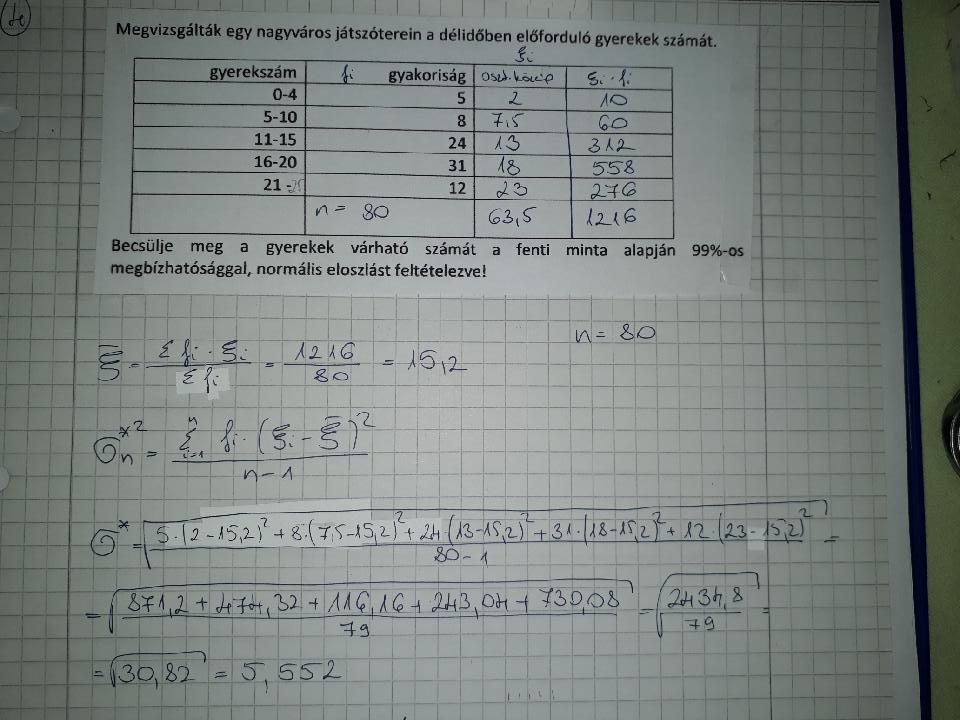 Megvizsgálták egy nagyváros játszóterein a délidőben előforduló gyerekek számát.
ξi
gyerekszám fi gyakoriság oszt.közép ξi · fi
0-4 5 2 10
5-10 8 7,5 60
11-15 24 13 312
16-20 31 18 558
21 -25 12 23 276
n = 80 63,5 1216
Becsülje meg a gyerekek várható számát a fenti minta alapján 99%-os
megbízhatósággal, normális eloszlást feltételezve!
n = 80
ξ̅ = Σ fi · ξi / Σ fi = 1216 / 80 = 15,2
σn*² = Σ(i=1, n) fi · (ξi - ξ̅)² / n - 1
σ* = √(5·(2-15,2)² + 8·(7,5-15,2)² + 24·(13-15,2)² + 31·(18-15,2)² + 12·(23-15,2)² / 80-1) =
= √(871,2 + 474,32 + 116,16 + 243,04 + 730,08 / 79) = √(2434,8 / 79) =
= √30,82 = 5,552